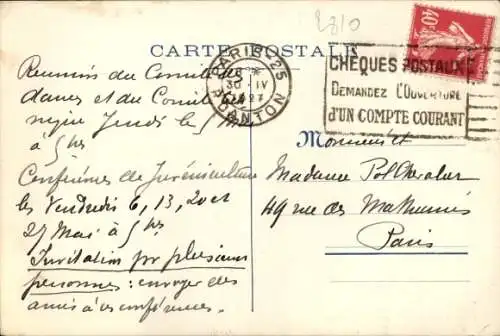 2810
CARTE POSTALE
40c
PARIS 25
18 *
30 IV
1927
R. DANTON
CHÈQUES POSTAUX
DEMANDEZ L'OUVERTURE
d'UN COMPTE COURANT
Réunions du Comité de
dames et du Comité
Jeudi le 5 Mai
à 5 hrs
Conférences de Juréniculture
les Vendredis 6, 13, 20 et
27 Mai à 5 hrs
Invitation pr plusieurs
personnes : envoyer des
amis à ces conférences.
Monsieur et
Madame Pol Chevalier
49 rue des Mathurins
Paris